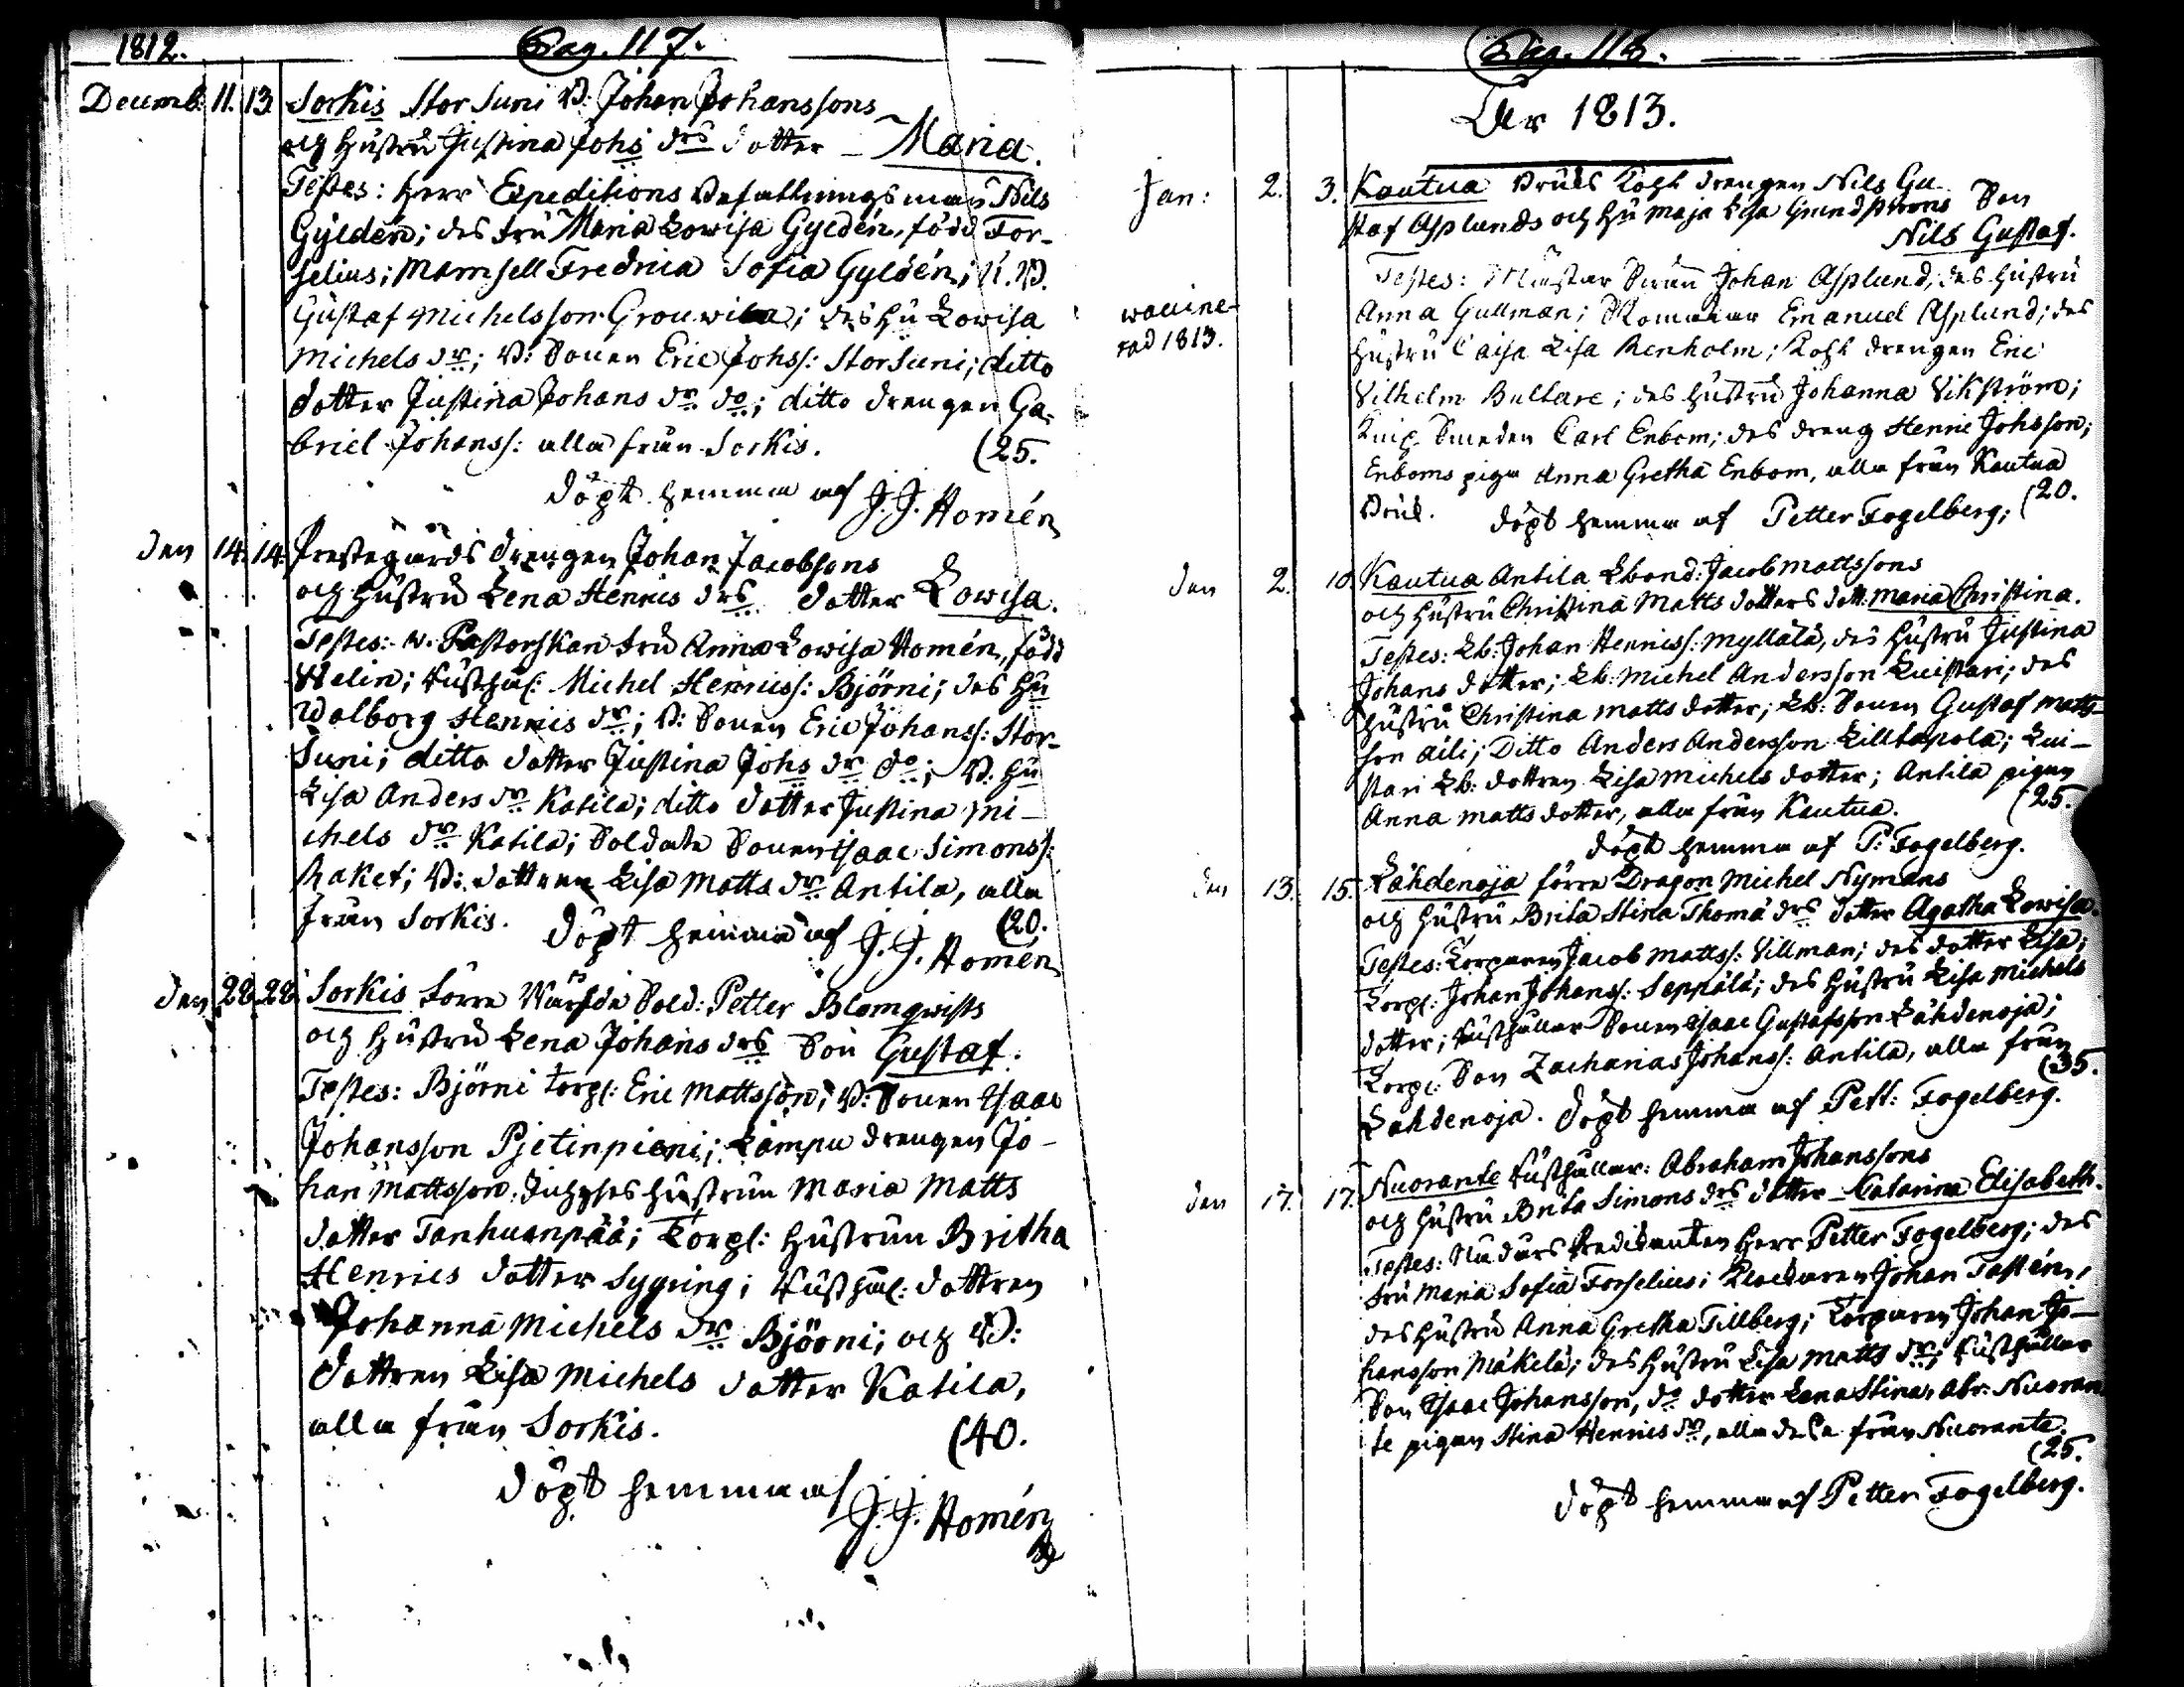 1812.
Pag. 117.
Decemb. 11. 13. Sorkis Stor Suni B: Johan Johanssons
och Hustru Justina Johs drs dotter – Maria.
Testes: Herr Expeditions Befallningsman Nils
Gyldén; des Fru Maria Lowisa Gyldén, född For-
selius; Mamsell Fredrica Sofia Gyldén; N.B.
Gustaf Michelsson Grouwila; des Hu Lowisa
Michels dr; B: Sonen Eric Johss: StorSuni; ditto
dotter Justina Johans dr do; ditto drengen Ga-
briel Johanss: alla från Sorkis. (25.
döpt hemma af J.J. Homén
den 14. 14. Prestegårds drengen Johan Jacobsons
och Hustru Lena Henrics drs dotter Lowisa.
Testes: w. Pastorskan Fru Anna Lowisa Homén, född
Welin; Rusthål: Michel Henricss: Björni; des Hu
Walborg Henrics dr; B: Sonen Eric Johanss: Stor-
Suni; ditto dotter Justina Johs dr do; B: Hu
Lisa Anders dr Katila; ditto dotter Justina Mi-
chels dr Katila; Soldate Sonen Isaac Simonss:
Raket; B: dottren Lisa Matts dr Antila, alla
från Sorkis. (20.
döpt hemma af J.J. Homén
den 28. 28. Sorkis förra Wärfde Sold: Petter Blomqwists
och Hustru Lena Johans drs Son Gustaf.
Testes: Björni Torp: Eric Mattsson; B: Sonen Isaac
Johansson Pjetinpieni; Lampu drengen Jo-
han Mattsson, Hustrun Maria Matts
dotter Tanhuanpää; Torp: Hustrun Britha
Henrics dotter Sygring; Rusthål: dottren
Johanna Michels dr Björni; och B:
dottren Lisa Michels dotter Katila,
alla från Sorkis. (40.
döpt hemma af
J.J. Homén
Pag. 118.
År 1813.
Jan: 2. 3. Kautua Bruks Kohl drengen Nils Gu-
staf Asplunds och Hu Maja Lisa Grundströms Son
Nils Gustaf.
Testes: Mästar Swän Johan Asplund, des Hustru
wacine-
rad 1813.
Anna Gullman; Emanuel Asplund; des
Hustru Caisa Lisa Renholm; Kohl drengen Eric
Vilhelm Bultare; des Hustru Johanna Vikström;
Knip Smeden Carl Enbom; des dreng Henric Johsson;
Enboms piga Anna Gretha Enbom, alla från Kautua
Bruk. (20.
döpt hemma af Petter Fogelberg;
den 2. 10. Kautua Antila Lbond: Jacob Mattssons
och Hustru Christina Matts dotters dott: Maria Christina.
Testes: Lb: Johan Henricss: Myllälä, des Hustru Justina
Johans dotter; Lb. Michel Andersson Luistari; des
Hustru Christina Matts dotter; Lb: Sonen Gustaf Matts-
son Äili; Ditto Anders Andersson Lilltapola; Lui-
stari Lb: dottren Lisa Michels dotter; Antila pigan
Anna Matts dotter, alla från Kautua. (25.
döpt hemma af P: Fogelberg.
den 13. 15. Lähdenoja förra Dragon Michel Nymans
och Hustru Brita Stina Thomä drs dotter Agatha Lowisa.
Testes: Torparen Jacob Matss: Villman; des dotter Lisa;
Torp: Johan Johanss: Seppälä; des Hustru Lisa Michels
dotter; Rusthållar Sonen Isaac Gustafsson Lähdenoja;
Torp: Son Zacharias Johanss: Antila, alla från
(35.
Lähdenoja. döpt hemma af Pett: Fogelberg.
den 17. 17. Nuorante Rusthållar: Abraham Johanssons
och Hustru Brita Simons drs dotter Catarina Elisabeth.
Testes: Nådårs Predikanten Herr Petter Fogelberg; des
Fru Maria Sofia Forselius; Klockaren Johan Tastén,
des Hustru Anna Gretha Tillberg; Torparen Johan Jo-
hansson Mäkelä; des Hustru Lisa Matts dr; Rusthållar
Son Isaac Johansson, do dotter Lena Stina, Abr: Nuoran
te pigan Stina Henrics dr, alla dessa från Nuorante.
(25.
döpt hemma af Petter Fogelberg.